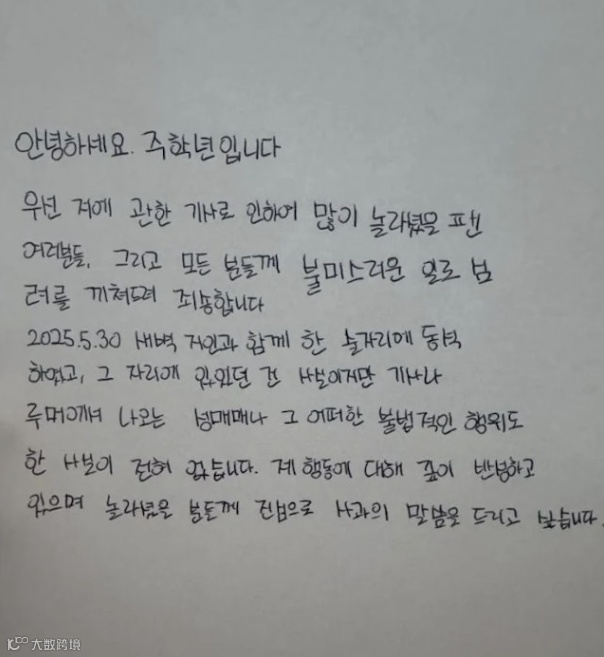 안녕하세요. 주학년입니다
우선 저에 관한 기사로 인하여 많이 놀라셨을 팬
여러분들, 그리고 모든 분들께 불미스러운 일로 심
려를 끼쳐드려 죄송합니다
2025.5.30 새벽 지인과 함께 한 술자리에 동석
하였고, 그 자리에 있었던 건 사실이지만 기사나
루머에서 나오는 성매매나 그 어떠한 불법적인 행위도
한 사실이 전혀 없습니다. 제 행동에 대해 깊이 반성하고
있으며 놀라셨을 분들께 진심으로 사과의 말씀을 드리고 싶습니다.
大数跨境